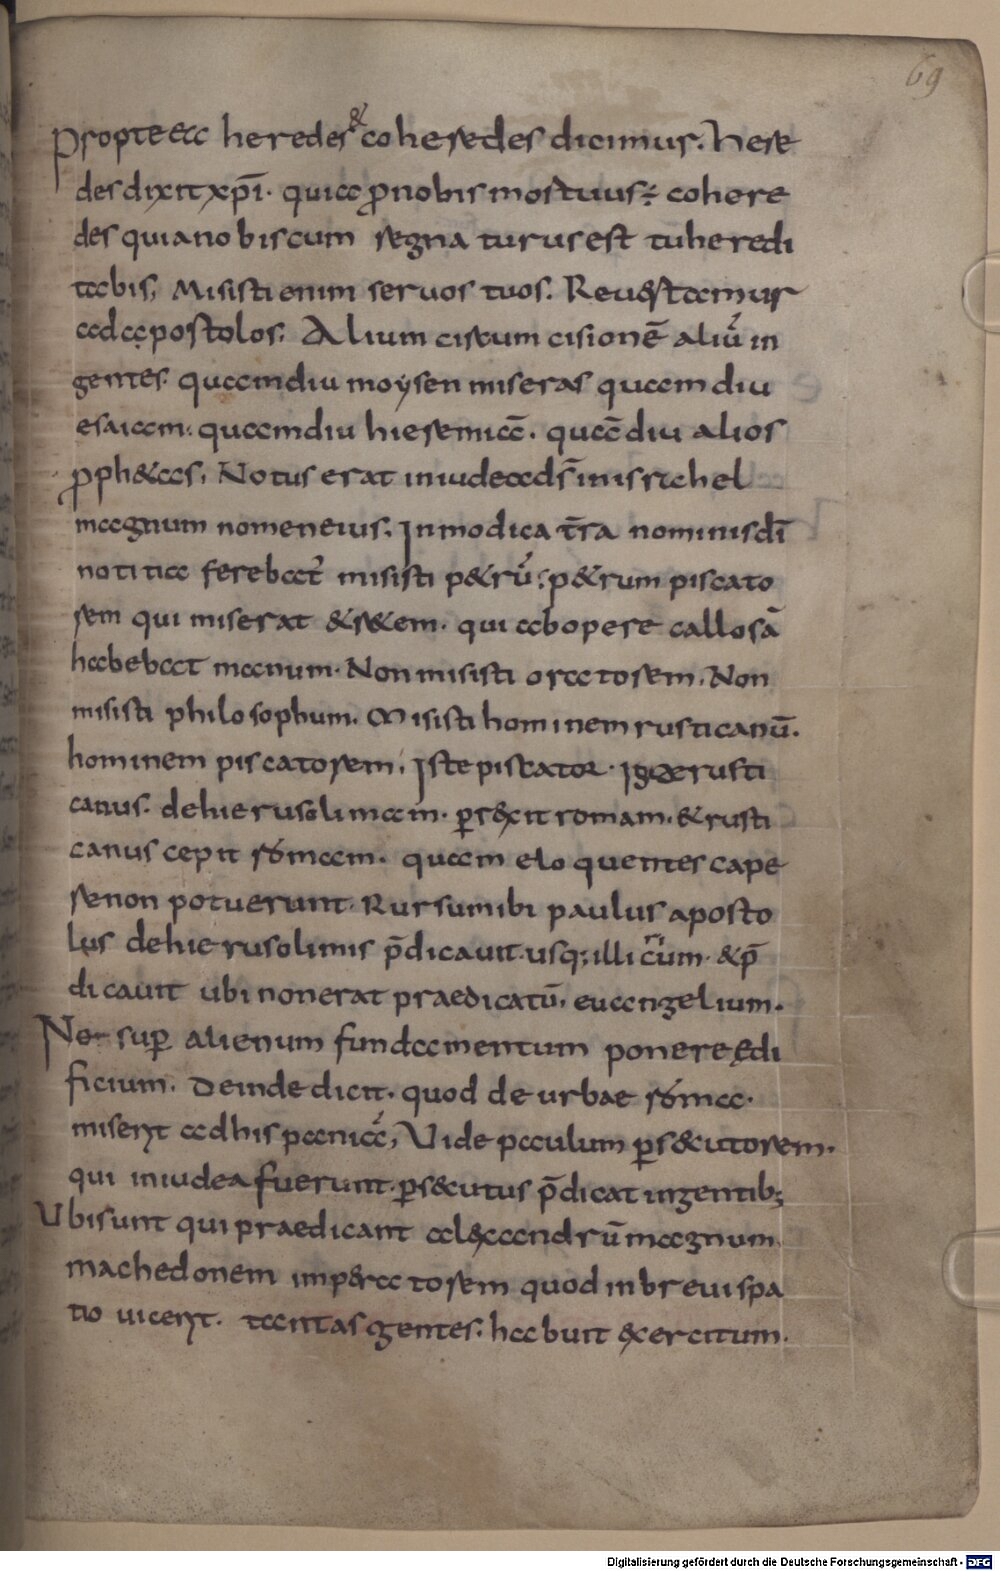 69
Propterea heredes & coheredes dicimus. here
des dixit xp̄i. quia p̄ nobis mortuus; cohere
des quia nobiscum regnaturus est tu heredi
tabis, Misisti enim seruos tuos. Reuertamur
ad apostolos. Alium circumcisionē aliū in
gentes. quamdiu moysen miseras quamdiu
esaiam. quamdiu hieremiā. quādiu alios
p̄ph&as, Notus erat in iudea d̄s in israhel
magnum nomen eius. In modica t̄ra nominis dī
notitia ferebat̄ misisti p&rū. p&rum piscato
rem qui miserat & r&em. qui ab opere callosā
habebat manum. Non misisti oratorem. Non
misisti philosophum. Misisti hominem rusticanū.
hominem piscatorem. Iste piscator. Iste rusti
canus. de hierusolimam. p̄r&xit romam. & rusti
canus cepit romam. quam eloquentes cape
re non potuerunt. Rursum ibi paulus aposto
lus de hierusolimis p̄dicauit. usq; illiricum. & p̄
dicauit ubi non erat praedicatū. euangelium.
Ne sup̄ alienum fundamentum ponere ędi
ficium. Deinde dicit. quod de urbae roma.
miserit ad hispaniā, Vide paulum p̄s&utorem.
qui in iudea fuerunt. p̄s&utus p̄dicat in gentib;
Ubi sunt qui praedicant alęxandrū magnum
machedonem imp&ratorem quod in breui spa
tio uicerit. tantas gentes. habuit &xercitum.
Digitalisierung gefördert durch die Deutsche Forschungsgemeinschaft - DFG